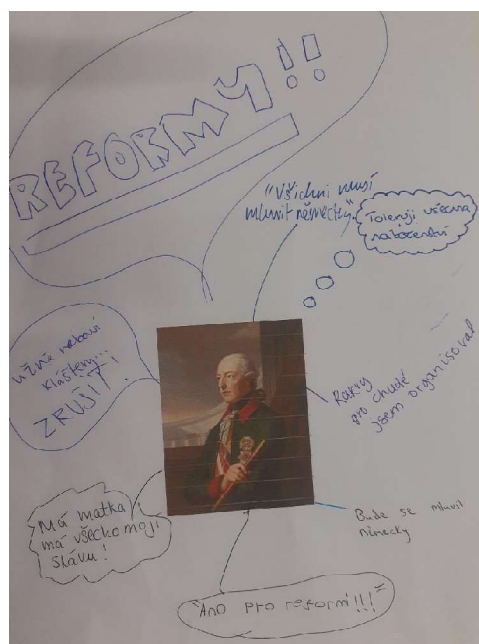 REFORMY!!
"Všichni musí
mluvit německy"
Toleruji všechna
náboženství
kláštery...
ZRUŠIT!
Rakvy
pro chudé
jsem organisoval
Má matka
má všecko moji
slávu!
Bude se mluvit
německy
"Ano pro reformi!!!"